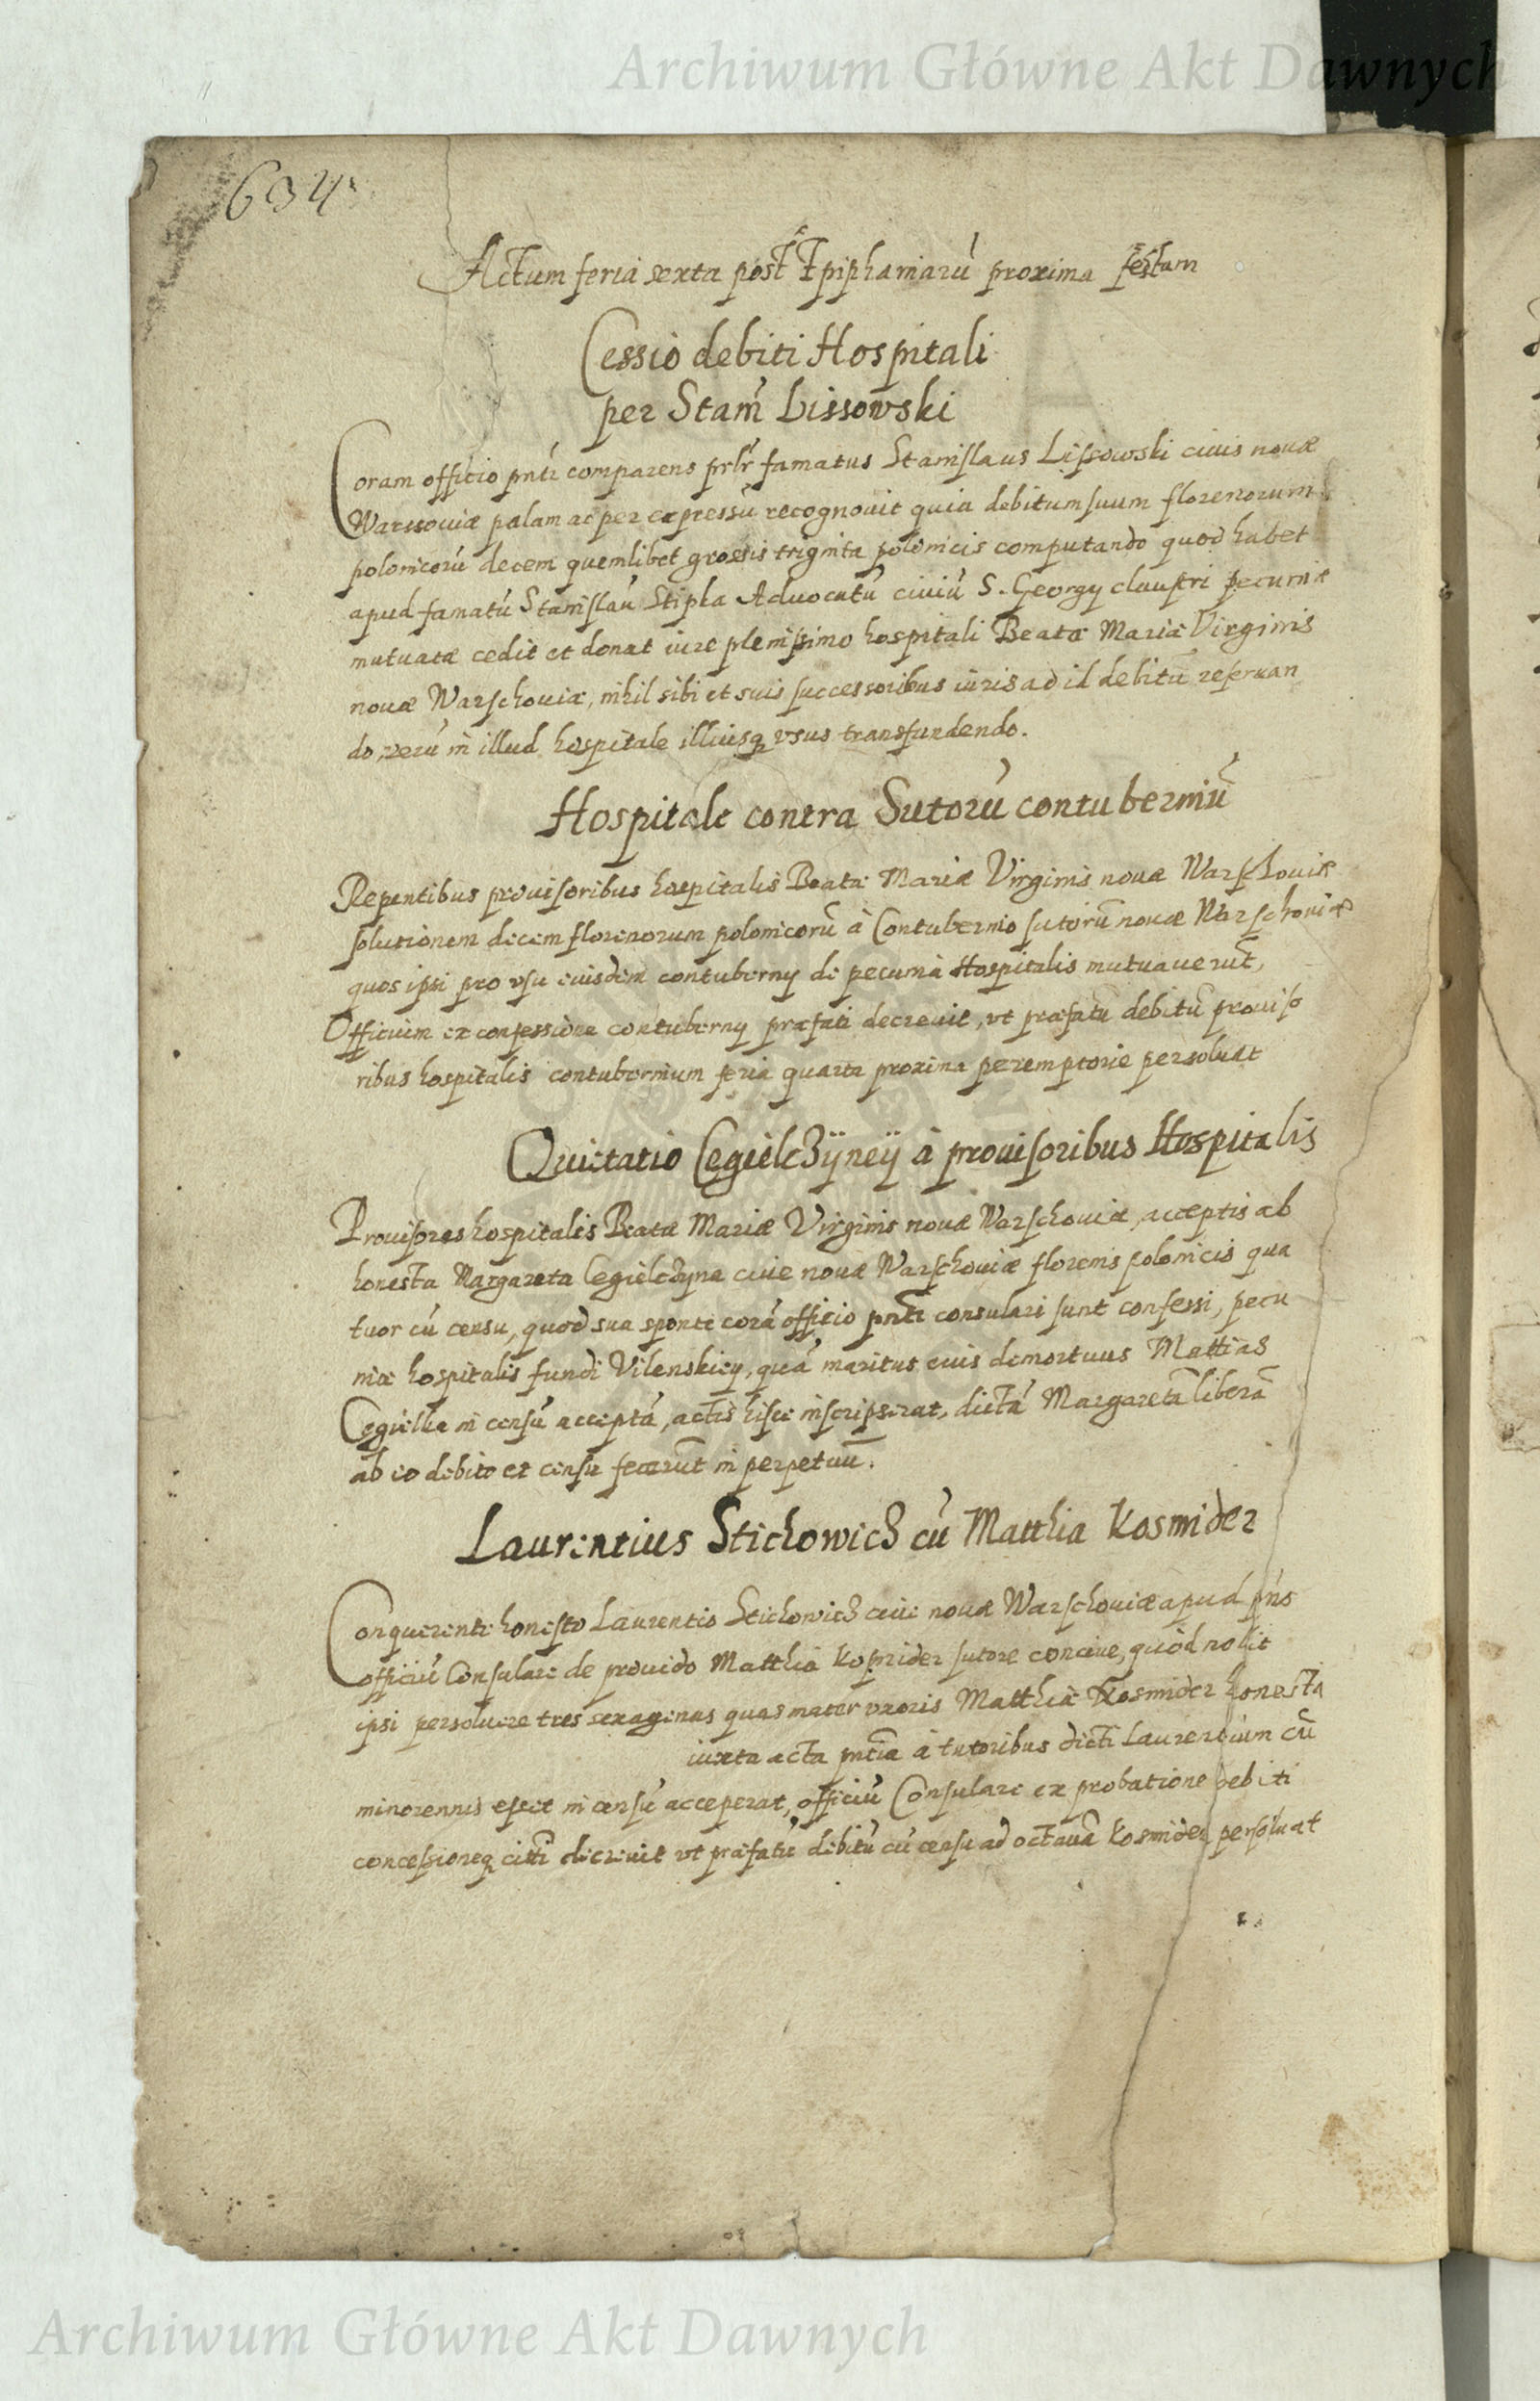 Archiwum Główne Akt Dawnych
634
Actum feria sexta post Epiphaniarū proxima festum
Cessio debiti Hospitali
per Stam̄ Lissowski
Coram officio pn̄ti comparens prlr̄ famatus Stanislaus Lissowski ciuis nouæ
Warssouiæ palam ac per expressū recognouit quia debitum suum florenorum
polonicorū decem quemlibet grossis triginta polonicis computando quod habet
apud famatū Stanislaū Stipka Aduocatū ciuiū S. Georgy claustri pecuniæ
mutuatæ cedit et donat iure plenissimo hospitali Beatæ Mariæ Virginis
nouæ Warschouiæ, nihil sibi et suis successoribus iuris ad id debitū reseruan
do, verū in illud hospitale illiusq vsus transfundendo.
Hospitale contra Sutorū contuberniū
Repentibus prouisoribus hospitalis Beatæ Mariæ Virginis nouæ Warschouiæ
solutionem decem florenorum polonicorū à Contubernio sutorū nouæ Warschouiæ
quos ipsi pro vsu eiusdem contuberny de pecunia Hospitalis mutuauerūt,
Officium ex confessione contuberny præfati decreuit, vt præfatū debitū prouiso
ribus hospitalis contubernium feria quarta proxima peremptorie persoluat
Quietatio Cegielczÿneÿ à prouisoribus Hospitalis
Prouisores hospitalis Beatæ Mariæ Virginis nouæ Warschouiæ, acceptis ab
honesta Margareta Cegielczyna ciue nouæ Warschouiæ florenis polonicis qua
tuor cū censu, quod sua sponte corā officio pn̄ti consulari sunt confessi, pecu
niæ hospitalis fundi Vilenskiey, quā maritus eius demortuus Mattias
Cegielka in censū acceptā, actis hisce inscripserat, dictā Margaretā liberā
ab eo debito et censu fecerūt in perpetuū.
Laurentius Stichowicz cū Matthia Kosmider
Conquerente honesto Laurentio Stichowicz ciue nouæ Warschouiæ apud pn̄s
officiū Consulare de prouido Matthia Kosmider sutore conciue, quòd nolit
ipsi persoluere tres sexagenas quas mater vxoris Matthiæ Kosmider honesta
iuxta acta pn̄tia à tutoribus dicti Laurentium cū
minorennis esset in censū acceperat, officiū Consulare ex probatione debiti
concessioneq citti decreuit vt præfatū debitū cū censu ad octauā Kosmider persoluat
Archiwum Główne Akt Dawnych